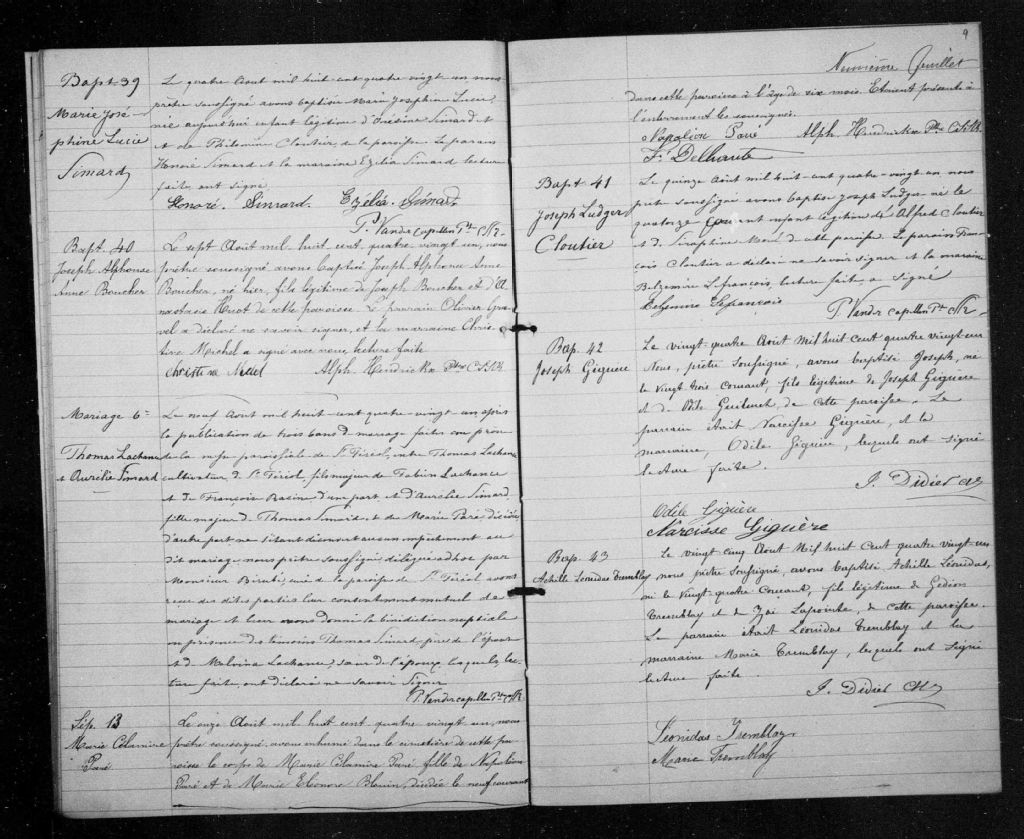 Bapt 39
Marie José-
phine Lucie
Simard
Le quatre Aout mil huit-cent quatre vingt un nous
prêtre soussigné avons baptisé Marie Josephine Lucie,
née aujourd'hui enfant légitime d'Onésime Simard et
et de Philomène Cloutier de la paroisse. Le parrain
Honoré Simard et la marraine Ezelia Simard lecture
faite, ont signé
Honoré. Simard. Ezélia. Simard.
P. Vandercapellen Pt
Bapt. 40
Joseph Alphonse
Anne Boucher
Le sept Aout mil huit cent quatre vingt un, nous
prêtre soussigné avons baptisé Joseph Alphonse Anne
Boucher, né hier, fils légitime de Joseph Boucher et d'A
nastasie Huot de cette paroisse. Le parrain Olivier Gra-
vel a déclaré ne savoir signer, et la marraine Chris-
tine Michel a signé avec nous, lecture faite
Christine Alph. Hendrickx Ptre C.SS.R.
Mariage 6
Thomas Lachance
et Aurélie Simard
Le neuf Aout mil huit-cent quatre-vingt-un après
la publication de trois bans de mariage faites
de la messe paroissiale de St Féréol, entre Thomas Lachance
cultivateur de St Féréol, fils majeur de Fabien Lachance
et de Françoise Racine d'un part et d'Aurélie Simard,
fille majeur de Thomas Simard et de Marie Paré
d'autre part ne s'étant découvert aucun empêchement au
dit mariage nous prêtre soussigné délégué ad hoc par
Monsieur curé de la paroisse de St Féréol avons
reçu des dites parties leur consentement mutuel de
mariage et leur avons donné la bénédiction nuptiale
en présence des temoins Thomas Simard père de l'épouse
et de Malvina Lachance, sœur de l'époux, lesquels, lec-
ture faite, ont déclaré ne savoir signer
P. Vandercapellen Pt
Sép. 13
Marie Célamire
Paré
Le onze Aout mil huit cent quatre vingt un, nous
prêtre soussigné, avons inhumé dans le cimetière de cette pa-
roisse le corps de Marie Célamire Paré fille de Napoléon
Paré et de Marie Eléonore Blouin, décédée le neuf courant
9
Neuvième Feuillet
dans cette paroisse à l'âge de six mois. Etaient présents à
l'enterrement les soussignés.
Napoléon Paré Alph. Hendrickx Ptre C.SS.R.
F. Delhaute
Bapt 41
Joseph Ludger
Cloutier
Le quinze Aout mil huit-cent quatre-vingt un nous
prêtre soussigné avons baptisé Joseph Ludger né le
quatorze courant enfant légitime de Alfred Cloutier
et de Séraphine de cette paroisse. Le parrain Fran-
çois Cloutier a déclaré ne savoir signer et la marraine
Lefrançois, lecture faite, a signé
Lefrancois P. Vandercapellen Pt
Bap. 42
Joseph Giguère
Le vingt-quatre Aout Mil huit cent quatre vingt-un
Nous, prêtre soussigné, avons baptisé Joseph, né
le vingt trois courant, fils légitime de Joseph Giguère
et de Odile de cette paroisse. Le
parrain était Narcisse Giguère, et la
marraine, Odile Giguère, lesquels ont signé
lecture faite.
J. Didier
Odile Giguère
Narcisse Giguère
Bap. 43
Achille Léonidas Tremblay
Le vingt cinq Aout Mil huit Cent quatre vingt-un
nous prêtre soussigné, avons baptisé Achille Léonidas,
né le vingt-quatre Courant, fils légitime de Gédéon
Tremblay et de Zoé Lapointe, de cette paroisse.
Le parrain était Léonidas Tremblay et la
marraine Marie Tremblay, lesquels ont signé
lecture faite.
J. Didier
Léonidas Tremblay
Marie Tremblay